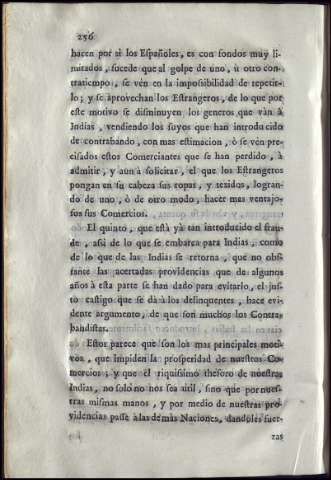 256
hacen por sì los Españoles, es con fondos muy li-
mitados, sucede que al golpe de uno, ù otro con-
tratiempo, se vèn en la imposibilidad de repetir-
lo; y se aprovechan los Estrangeros, de lo que por
este motivo se disminuyen los generos que vàn à
Indias, vendiendo los suyos que han introducido
de contrabando, con mas estimacion, ò se vèn pre-
cisados estos Comerciantes que se han perdido, à
admitir, y aun à solicitar, el que los Estrangeros
pongan en su cabeza sus ropas, y texidos, logran-
do de uno, ò de otro modo, hacer mas ventajo-
sos sus Comercios.
El quinto, que està yà tan introducido el frau-
de, asi de lo que se embarca para Indias, como
de lo que de las Indias se retorna, que no obs-
tante las acertadas providencias que de algunos
años à esta parte se han dado para evitarlo, el jus-
to castigo que se dà à los delinquentes, hace evi-
dente argumento, de que son muchos los Contra-
bandistas.
Estos parece que son los mas principales moti-
vos, que impiden la prosperidad de nuestros Co-
mercios; y que el riquisimo thesoro de nuestras
Indias, no solo no nos sea util, sino que por nues-
tras mismas manos, y por medio de nuestras pro-
videncias passe à las demàs Naciones, dandoles fuer-
zas